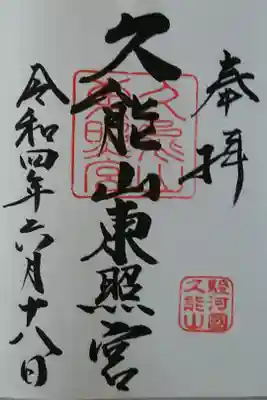 奉拝
久能山東照宮
令和四年六月十八日
久能山東照宮
駿河國久能山